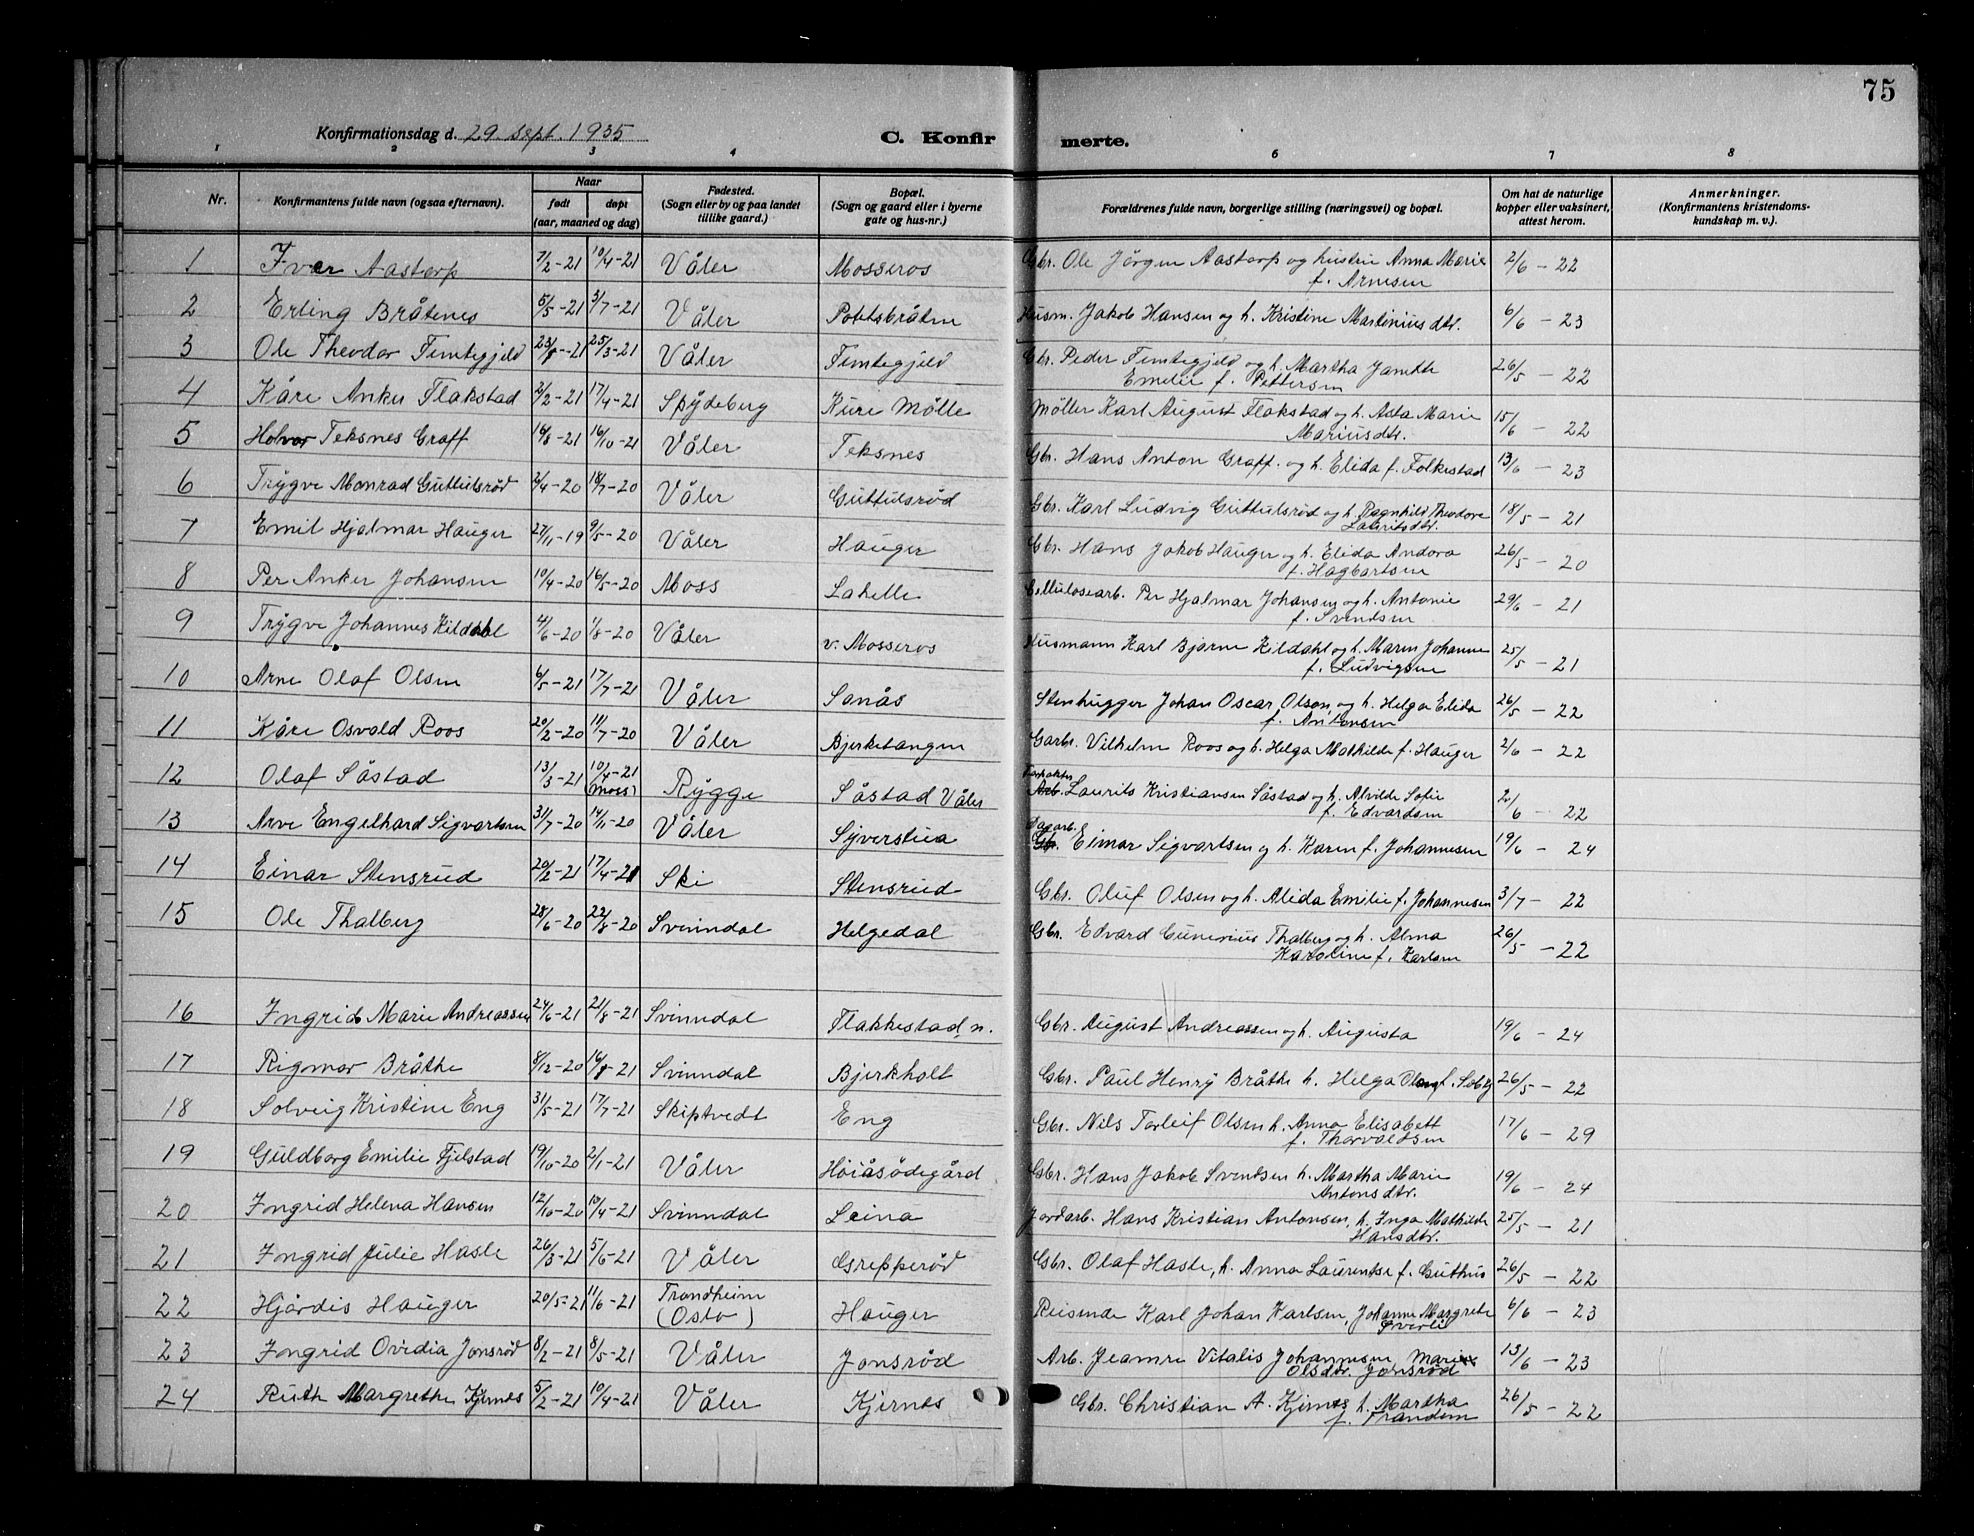 75
Konfirmationsdag d. 29. sept. 1935
C. Konfirmerte.
1 2 3 4 6 7 8
Nr. Konfirmantens fulde navn (ogsaa efternavn). Naar født døpt (aar, maaned og dag) Fødested. (Sogn eller by og paa landet tillike gaard.) Bopæl. (Sogn og gaard eller i byerne gate og hus-nr.) Forældrenes fulde navn, borgerlige stilling (næringsvei) og bopæl. Om hat de naturlige kopper eller vaksinert, attest herom. Anmerkninger. (Konfirmantens kristendoms-kundskap m. v.).
1 Ivar Aastorp 7/2-21 10/4-21 Våler Mosseros Gbr. Ole Jörgen Aastorp og hustru Anna Marie f. Arnesen 2/6 - 22
2 Erling Bråtenes 5/5-21 3/7-21 Våler Pottsbråten Husm. Jakob Hansen og h. Kristine Martinius dtr. 6/6 - 23
3 Ole Theodor Femtegjeld -21 -21 Våler Femtegjeld Gbr. Peder Femtegjeld og h. Martha Janette Emelie f. Pettersen 26/5 - 22
4 Kåre Anker Flakstad 2/2-21 17/4-21 Spydeberg Kure Mölle Möller Karl August Flakstad og h. Asta Marie Mariusdtr. 15/6 - 22
5 Holvar Teksnes Graff 16/8-21 16/10-21 Våler Teksnes Gbr. Hans Anton Graff. og h. Elida f. Folkestad 13/6 - 23
6 Trygve Monrad Guttulsröd 2/4-20 18/7-20 Våler Guttulsröd Gbr. Karl Ludvig Guttulsröd og h. Ragnhild Theodore Lauritsdtr. 18/5 - 21
7 Emil Hjalmar Hauger 27/11-19 9/5-20 Våler Hauger Gbr. Hans Jakob Hauger og h. Elida Andora f. Hagbartsen 26/5 - 20
8 Per Anker Johansen 10/4-20 16/5-20 Moss Lahelle Cellulosearb. Per Hjalmar Johansen og h. Antonie f. Svendsen 29/6 - 21
9 Trygve Johannes Kildahl 4/6-20 1/8-20 Våler v. Mosseros Husmann Karl Bjarne Kildahl og h. Maren Johanne f. Ludvigsen 25/5 - 21
10 Arne Olaf Olsen 6/5-21 17/7-21 Våler Sanås Stenhugger Johan Oscar Olson, og h. Helga Elida f. Antonsen 26/5 - 22
11 Kåre Osvald Roos 20/2-20 11/7-20 Våler Bjerketangen Garbr. Vilhelm Roos og h. Helga Mathilde f. Hauger 2/6 - 22
12 Olaf Såstad 13/3-21 10/4-21 (Moss) Rygge Såstad Våler Forpakter Arb. Laurits Kristiansen Såstad og h. Alvilde Sofie f. Edvardsen 2/6 - 22
13 Arve Engelhard Sigvartsen 31/7-20 14/11-20 Våler Syverstua Dagarb. Gbr. Eimar Sigvartsen og h. Karen f. Johannesen 19/6 - 24
14 Einar Stensrud 20/2-21 17/4-21 Ski Stensrud Gbr. Oluf Olsen og h. Alida Emilie f. Johannesen 3/7 - 22
15 Ole Thalberg 28/6-20 22/8-20 Svinndal Helgedal Gbr. Edvard Cunerius Thalberg og h. Alma Karoline f. Karlsen 26/5 - 22
16 Ingrid Marie Andreassen 24/6-21 21/8-21 Svinndal Flakkestad, n. Gbr. August Andreassen og h. Augusta 19/6 - 24
17 Rigmor Bråthe 8/12-20 -21 Svinndal Bjerkholt Gbr. Paul Henry Bråthe h. Helga Olsen f. 26/5 - 22
18 Solveig Kristine Eng 31/5-21 17/7-21 Skiptvedt Eng Gbr. Nils Torleif Olsen h. Anna Elisabett f. Thorvaldsen 17/6 - 29
19 Guldborg Emilie Fjelstad 19/10-20 2/1-21 Våler Höiåsödegård Gbr. Hans Jakob Svendsen h. Martha Marie Antonsdtr. 19/6 - 24
20 Ingrid Helena Hansen 12/10-20 10/4-21 Svinndal Leina Jordarb. Hans Kristian Antonsen, h. Inga Mathilde Hansdtr. 25/5 - 21
21 Ingrid Julie Hasle 26/3-21 5/6-21 Våler Grepperöd Gbr. Olaf Hasle, h. Anna Laurentse f. Guthus 26/5 - 22
22 Hjördis Hauger 20/5-21 11/6-21 Trondheim (Oslo) Hauger Reisende Karl Johan Karlsen, Johanne Margrete 6/6 - 23
23 Ingrid Ovidia Jonsröd 8/2-21 8/5-21 Våler Jonsröd Arb. Jeamre Vitalis Johannesen Marie Olsdtr. Jonsröd 13/6 - 23
24 Ruth Margrethe Kjernes 5/2-21 10/4-21 Våler Kjernes Gbr. Christian A. Kjernes h. Martha f. Trandem 26/5 - 22